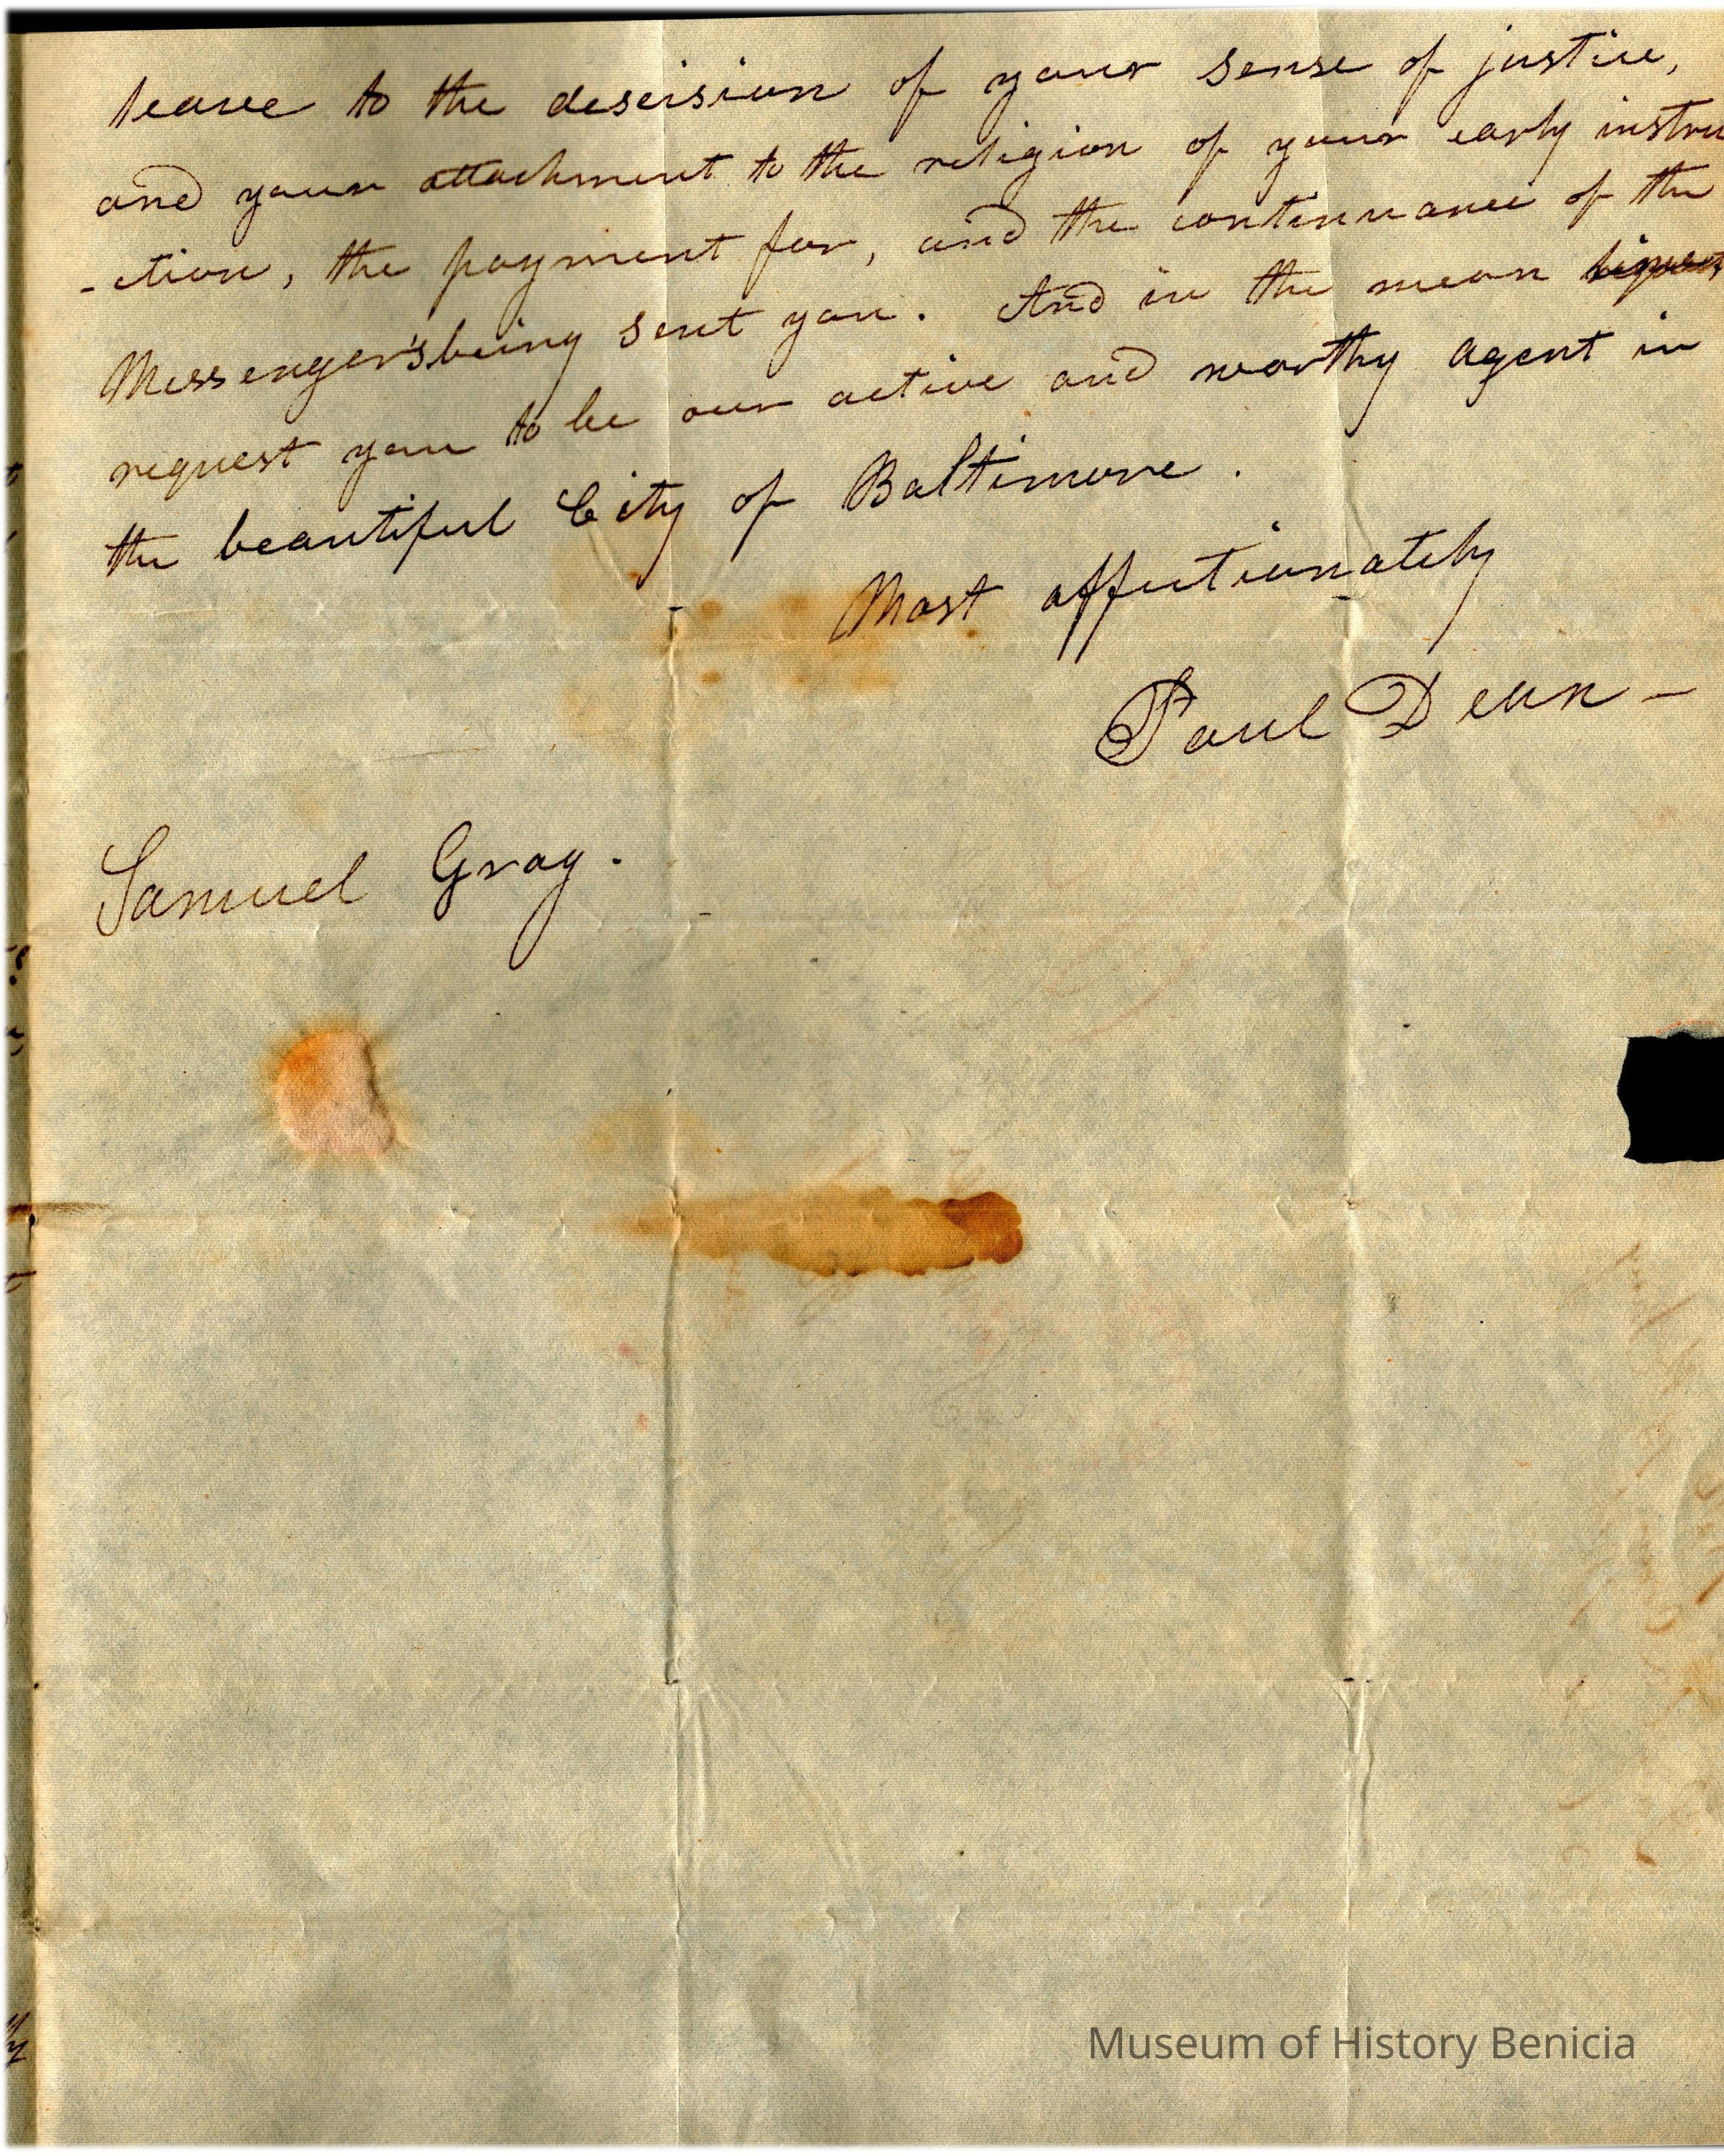 leave to the descision of your sense of justice,
and your attachment to the religion of your early instru
-ction, the payment for, and the continuance of the
Messenger's being sent you. And in the mean
request you to be our active and worthy agent in
the beautiful City of Baltimore.
Most affectionately
Paul Dean -
Samuel Gray.
Museum of History Benicia